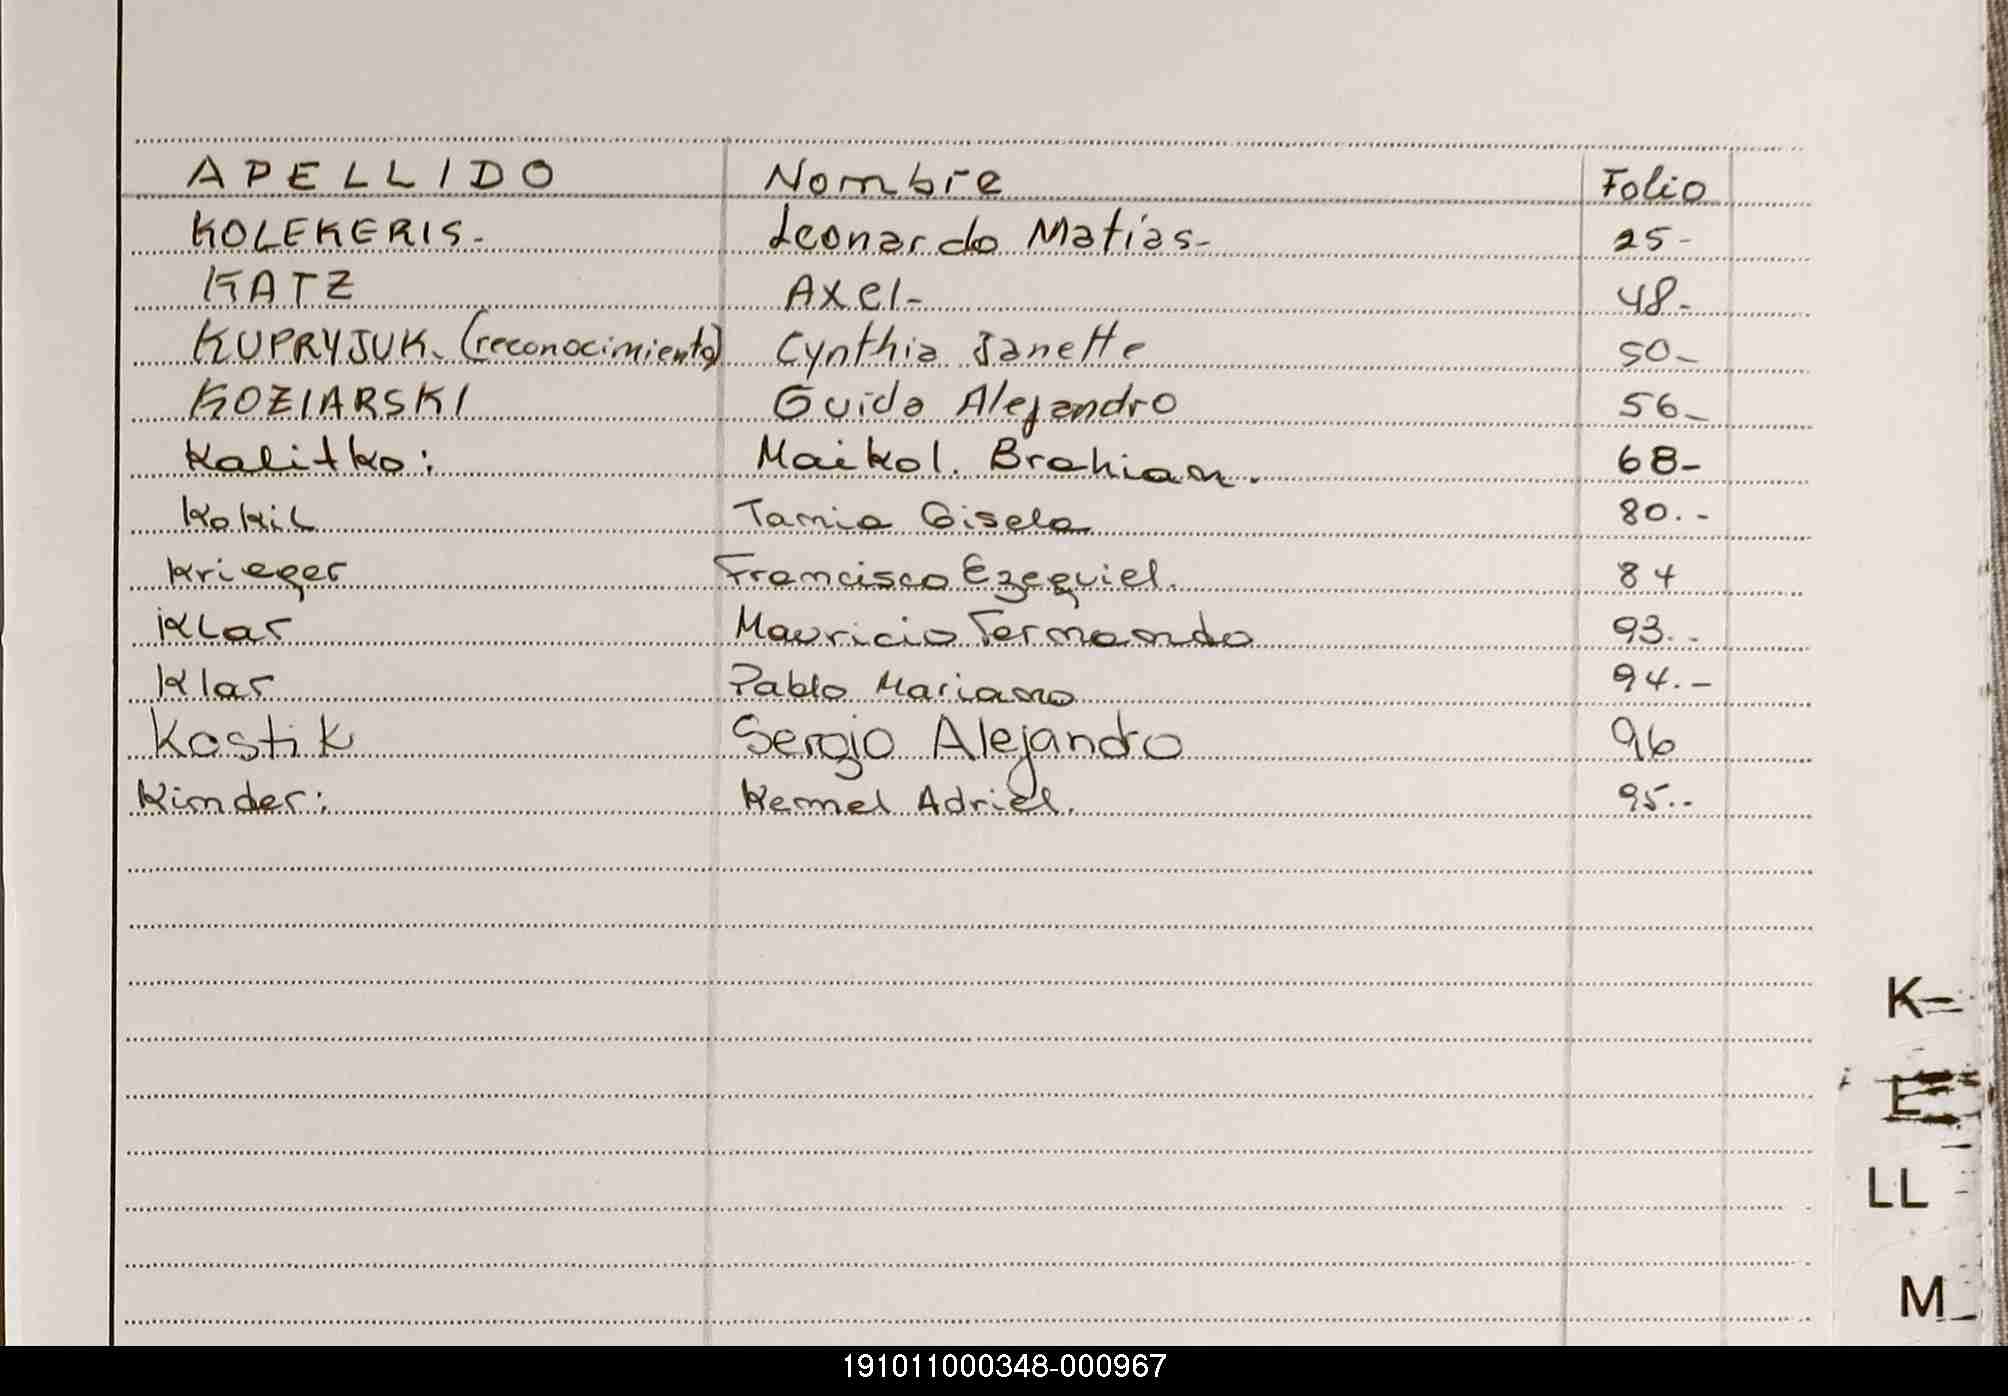 APELLIDO Nombre Folio
KOLEKERIS- Leonardo Matías- 25-
KATZ Axel- 48-
KUPRYJUK. (reconocimiento) Cynthia Janette 50-
KOZIARSKI Guido Alejandro 56-
Kalitko: Maikol. Brahian. 68-
Kokil Tania Gisela 80.-
Krieger Francisco Ezequiel. 84
Klar Mauricio Fernando 93.-
Klar Pablo Mariano 94.-
Kostik Sergio Alejandro 96
Kinder: Kemel Adriel. 95.-
K
LL
M
191011000348-000967